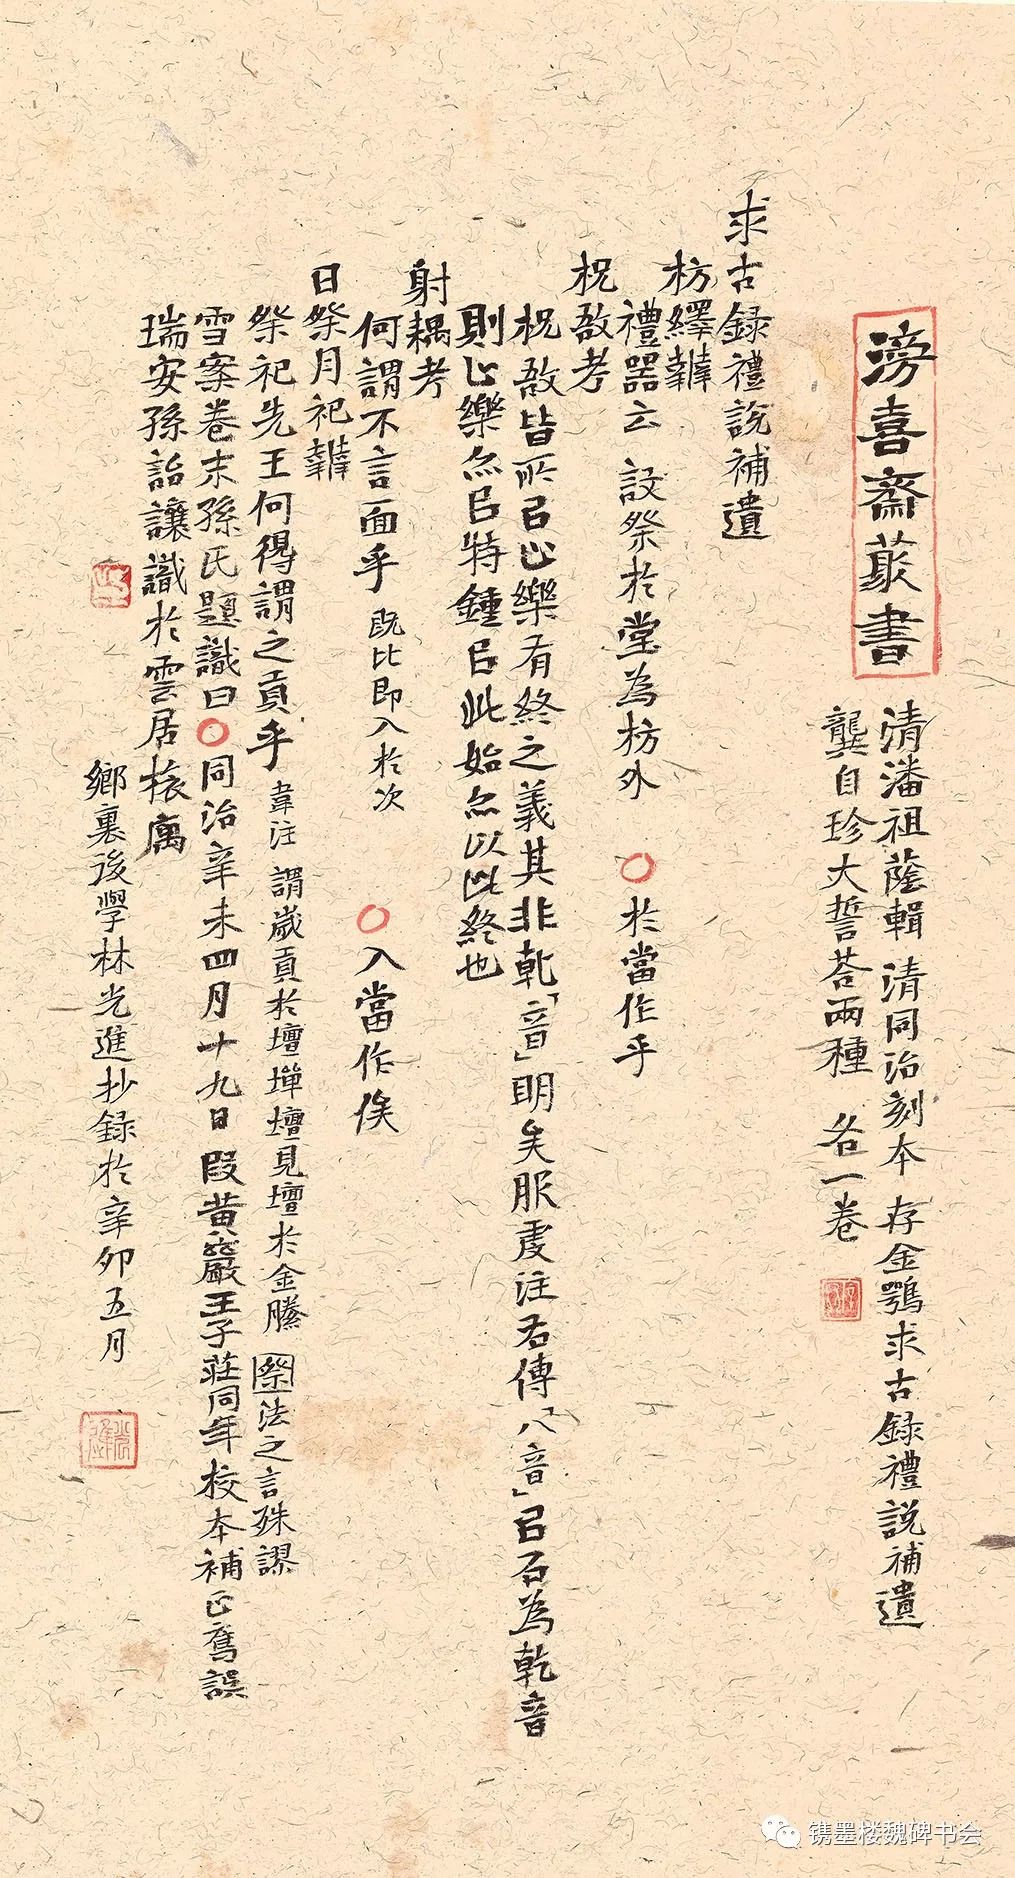 滂喜齋叢書
清潘祖蔭輯 清同治刻本 存金鶚求古錄禮說補遺
龔自珍大誓荅兩種 各一卷
求古錄禮說補遺
枋繹辭
禮器云 設祭於堂為枋外 〇於當作乎
柷敔考
柷敔皆所㠯止樂有終之義其非乾「音」明矣服虔注左傳「八音」㠯石為乾音
則止樂尒㠯特鍾㠯此始尒以此終也
射耦考
何謂不言面乎 既比即入於次 〇入當作俟
日祭月祀辭
祭祀先王何得謂之貢乎 韋注 謂歲貢於壇墠壇見壇於金縢 祭法之言殊謬
雪案卷末孫氏題識曰〇同治辛未四月十九日段黃巖王子莊同年校本補正奪誤
瑞安孫詒讓識於雲居�廎
鄉裏後學林光進抄録於辛卯五月
镌墨楼魏碑书会